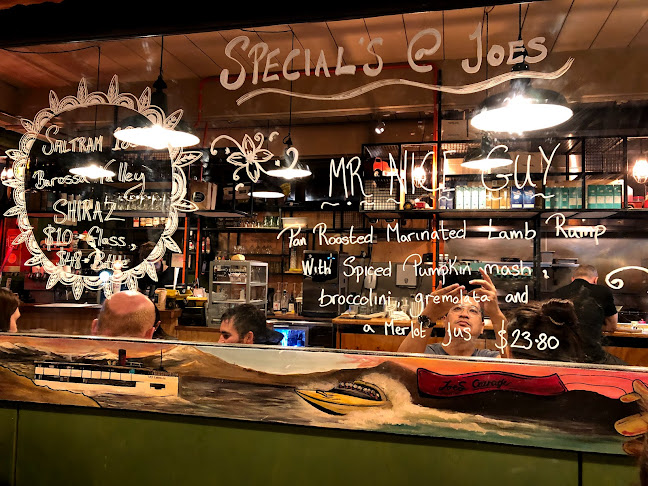 SPECIAL'S @ JOES
SALTRAM
Barossa Valley
SHIRAZ
$10 Glass,
$48
MR NICE GUY
Pan Roasted Marinated Lamb Rump
With Spiced Pumpkin mash,
broccolini, gremolata and
a Merlot Jus $23.80
Joe's Garage